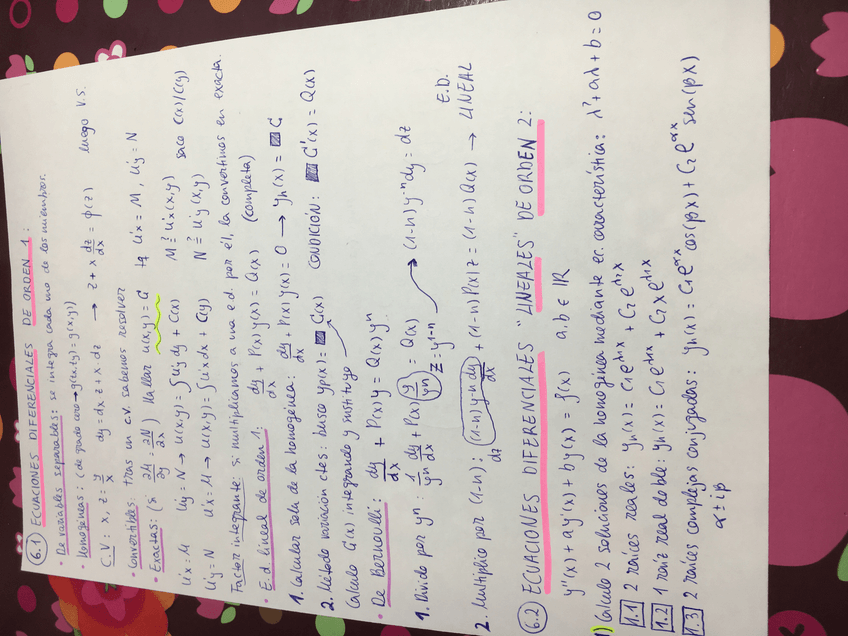 6.1) ECUACIONES DIFERENCIALES DE ORDEN 1:
• De variables separables: se integra cada uno de los miembros.
• Homogéneas: (de grado cero → g(tx,ty)=g(x,y))
C.V: x, z = y/x   dy = dx z + x dz → z + x dz/dx = φ(z)   luego V.S.
• Convertibles: tras un c.v. sabemos resolver
• Exactas: (si ∂M/∂y = ∂N/∂x) Hallar u(x,y) = C tq U'x = M, U'y = N
U'x = M   U'y = N → u(x,y) = ∫U'y dy + C(x)   M ?= U'x(x,y)   saco C(x)/C(y)
U'y = N   U'x = M → u(x,y) = ∫U'x dx + C(y)   N ?= U'y(x,y)
Factor integrante: si multiplicamos a una e.d. por él, la convertimos en exacta.
• E.d. lineal de orden 1: dy/dx + P(x)y(x) = Q(x)   (completa)
1. Calcular soln de la homogénea: dy/dx + P(x)y(x) = 0 → yh(x) = C
2. Método variación ctes: busco yp(x) = C(x)   CONDICIÓN: C'(x) = Q(x)
Calculo C(x) integrando y sustituyo
• De Bernoulli: dy/dx + P(x)y = Q(x)yⁿ
1. Divido por yⁿ: 1/yⁿ dy/dx + P(x) y/yⁿ = Q(x)
z = y¹⁻ⁿ → (1-n)y⁻ⁿ dy = dz
2. Multiplico por (1-n): (1-n)y⁻ⁿ dy/dx + (1-n)P(x)z = (1-n)Q(x) → E.D. LINEAL
dz
6.2) ECUACIONES DIFERENCIALES "LINEALES" DE ORDEN 2:
y''(x) + ay'(x) + by(x) = f(x)   a,b ∈ ℝ
1) Calculo 2 soluciones de la homogénea mediante ec. característica: λ² + aλ + b = 0
1.1 2 raíces reales: yh(x) = C₁e^λ₁x + C₂e^λ₂x
1.2 1 raíz real doble: yh(x) = C₁e^λ₁x + C₂xe^λ₁x
1.3 2 raíces complejas conjugadas: yh(x) = C₁e^αx cos(βx) + C₂e^αx sen(βx)
α ± iβ